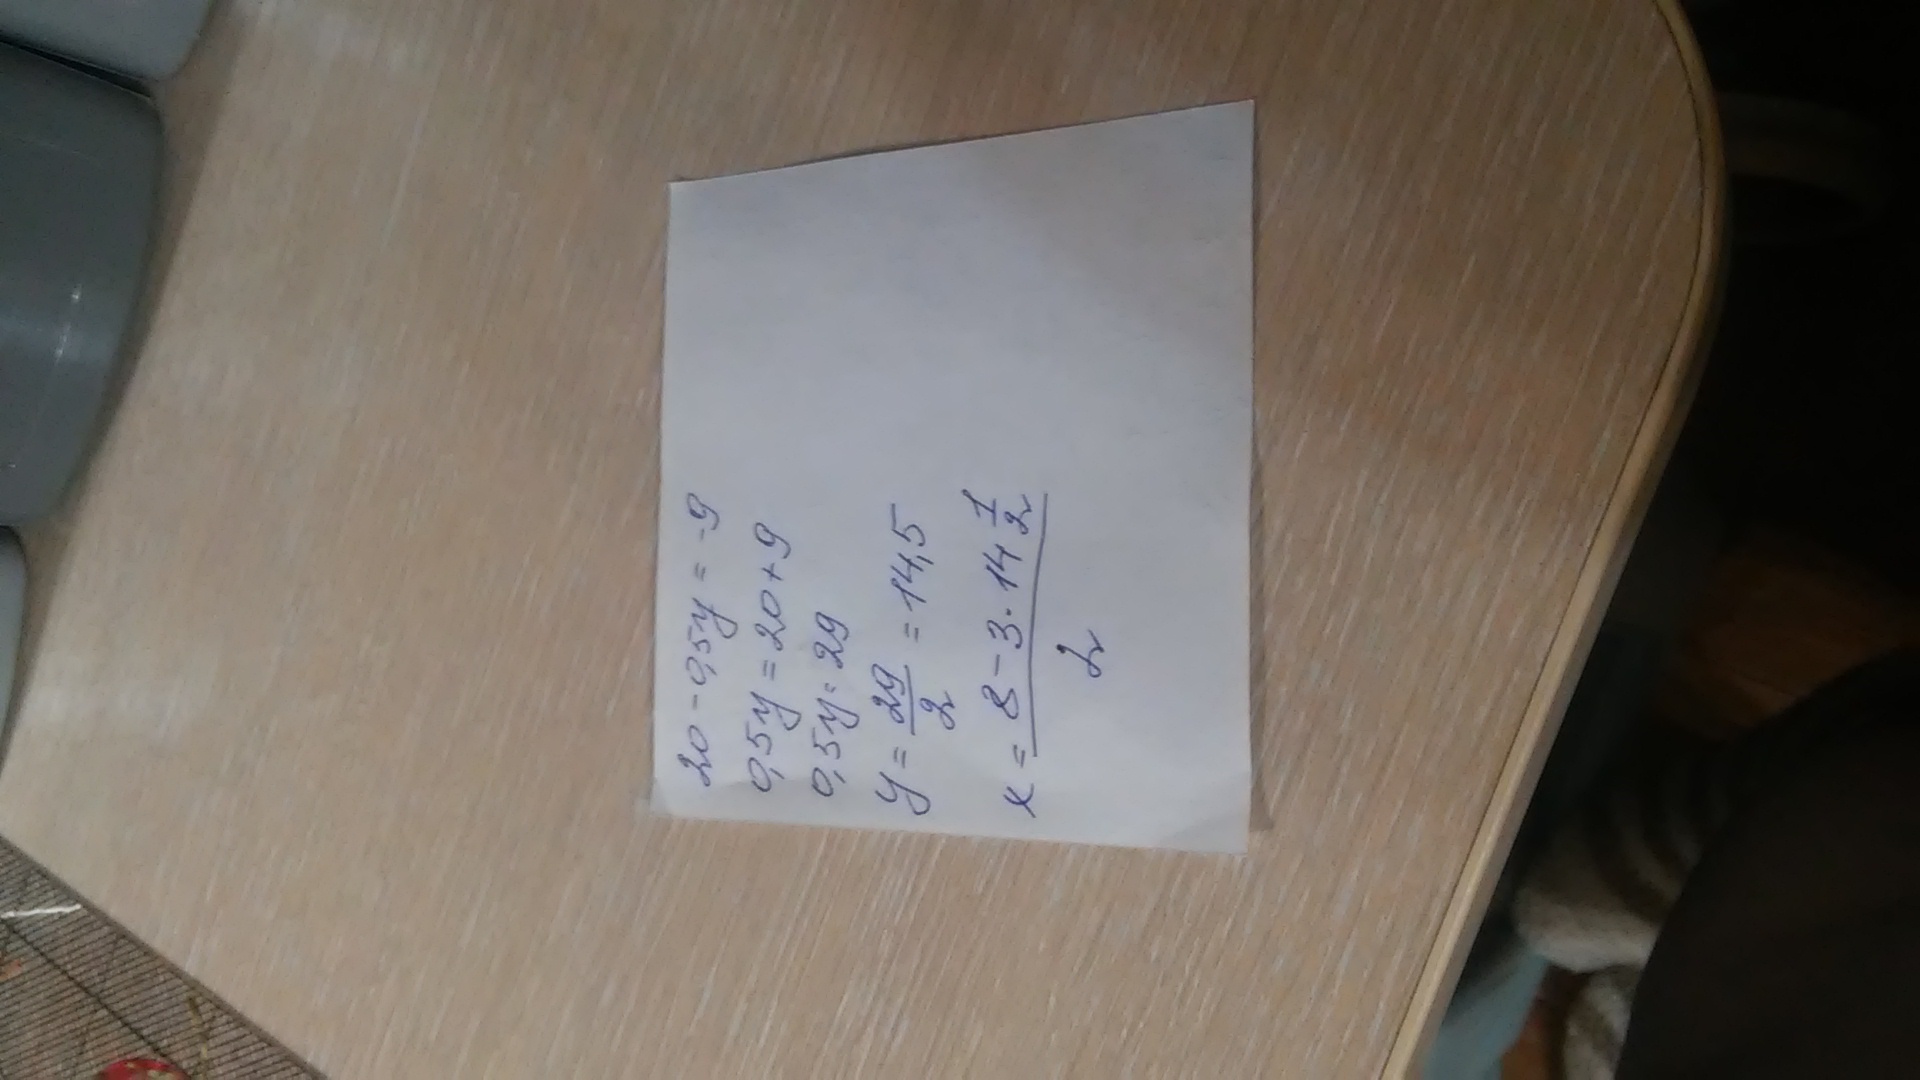 20 - 0,5y = -9
0,5y = 20 + 9
0,5y = 29
y = 29/2 = 14,5
x = (8 - 3 · 14 1/2)/2